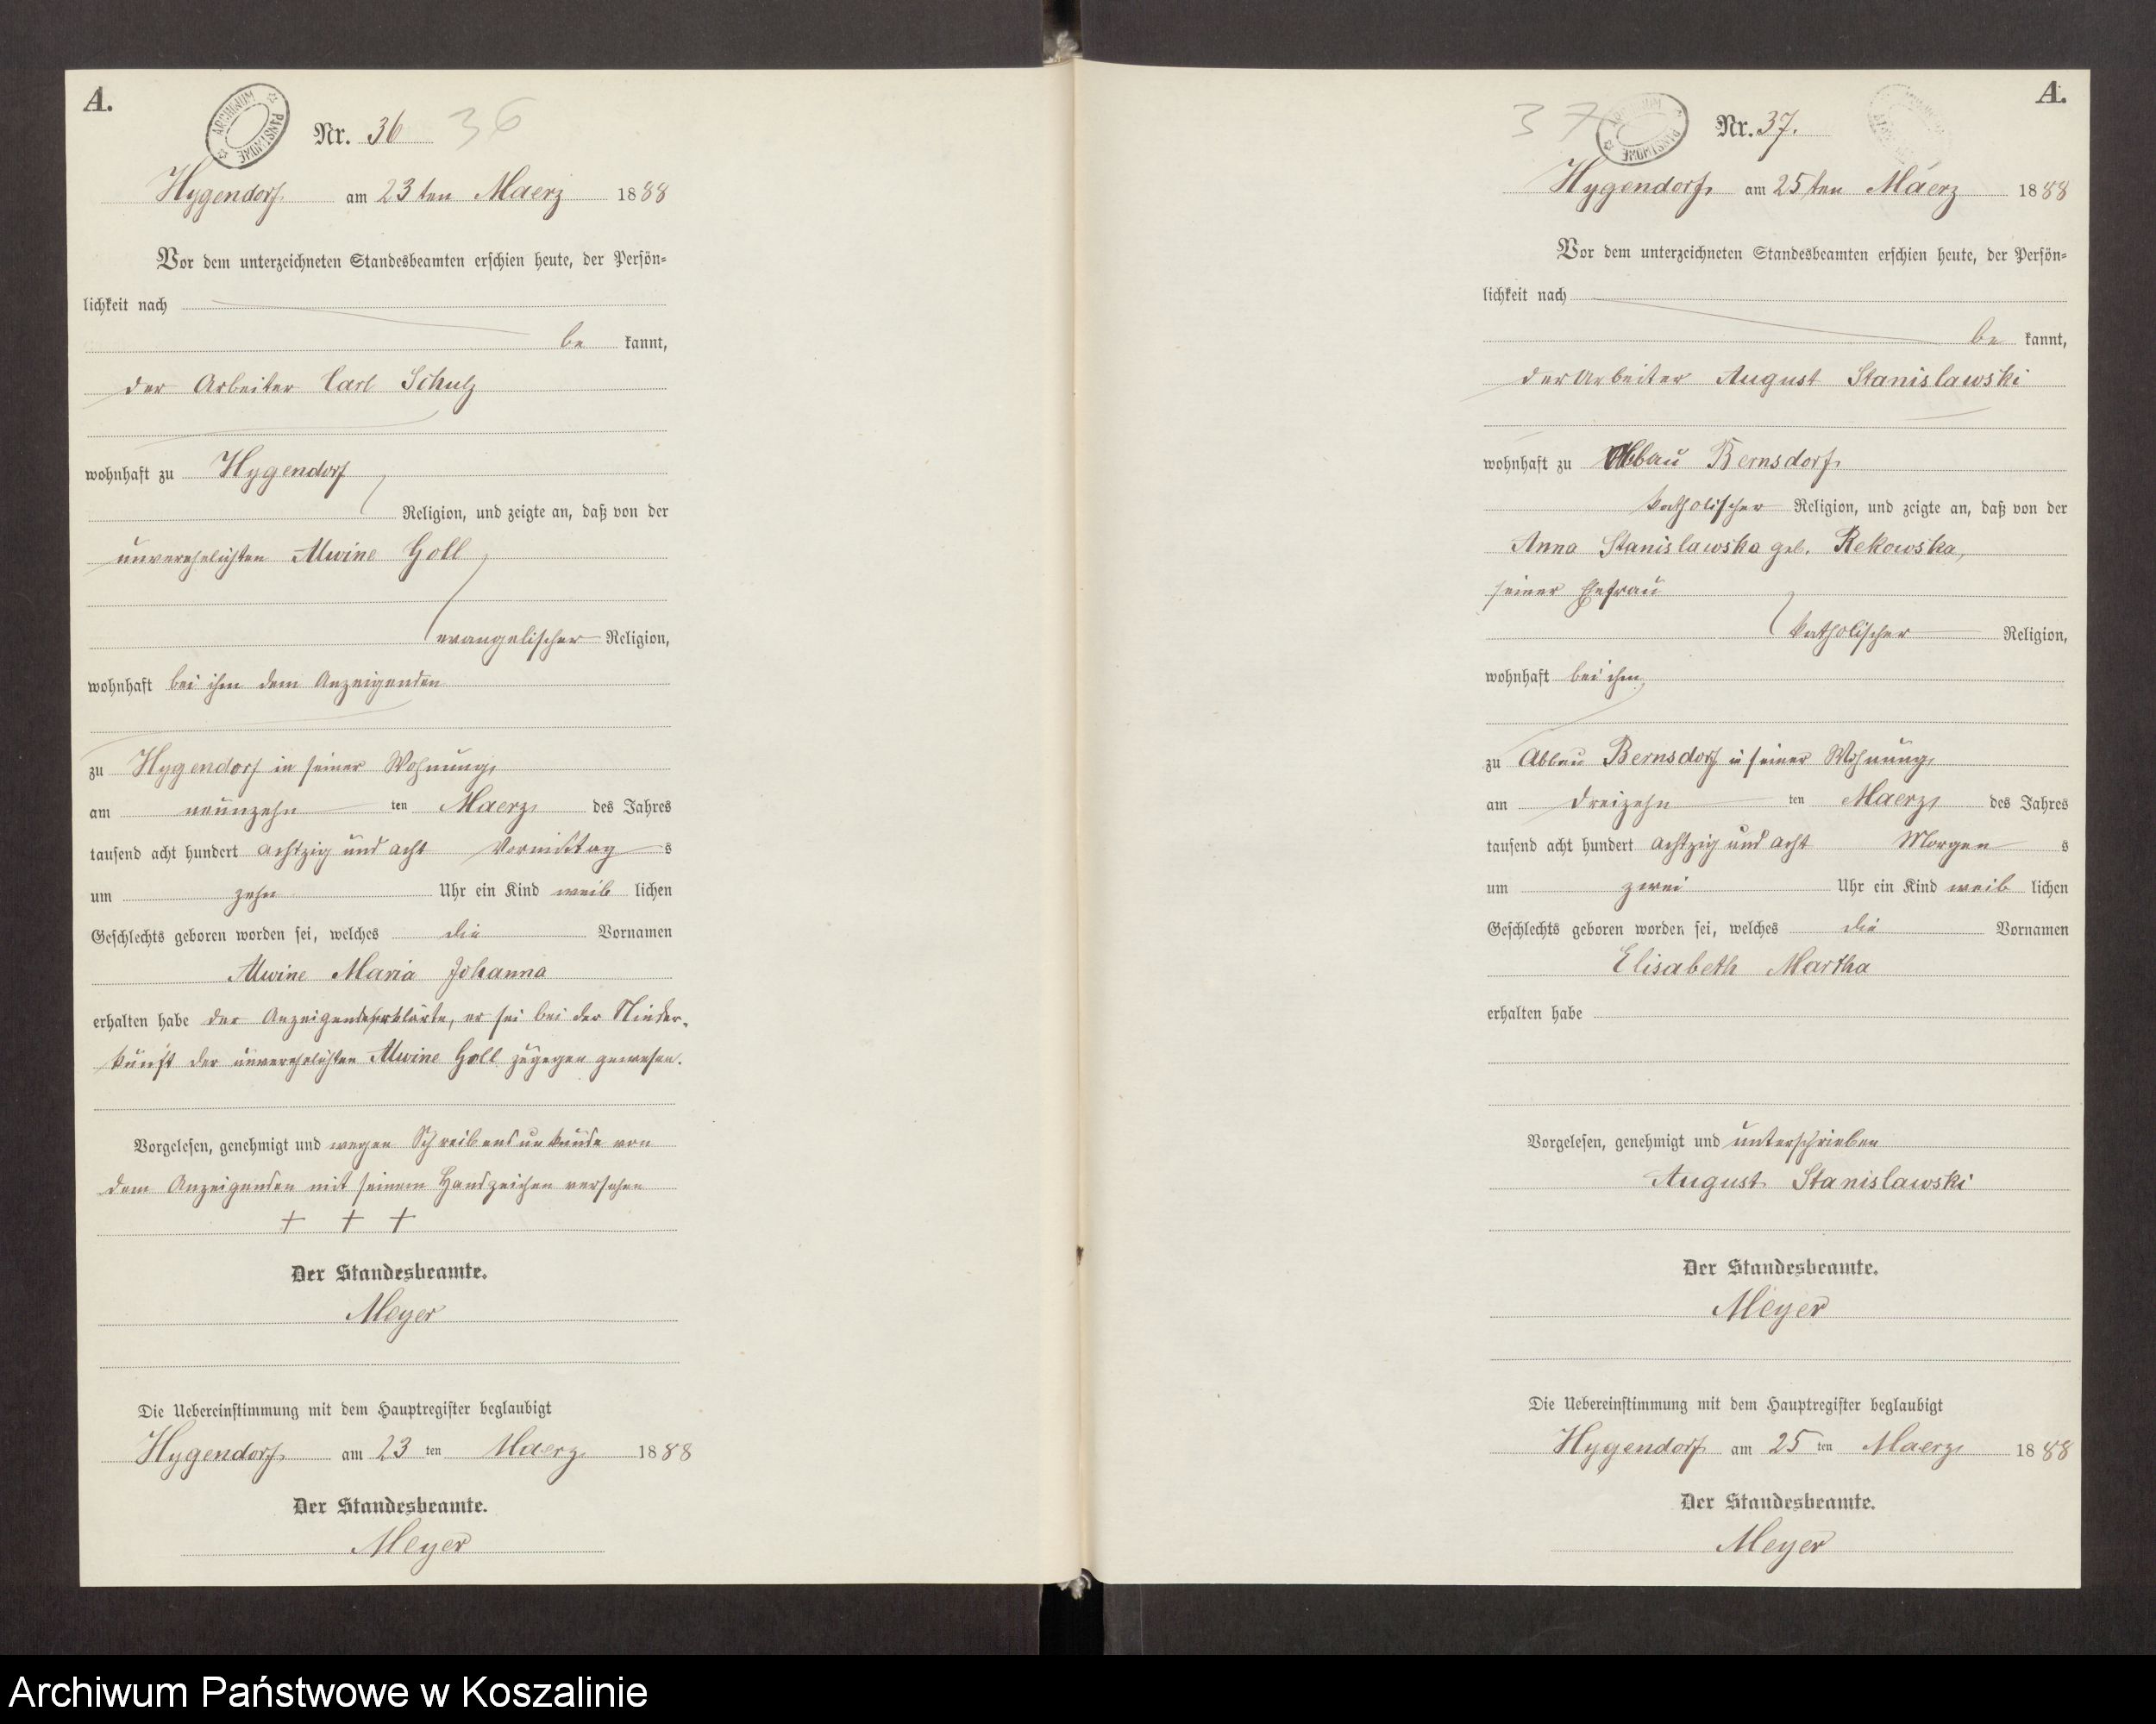 A.
ARCHIWUM PAŃSTWOWE
Nr. 36 36
Hygendorf am 23ten Maerz 1888
Vor dem unterzeichneten Standesbeamten erschien heute, der Persön-
lichkeit nach
be kannt,
der Arbeiter Carl Schulz
wohnhaft zu Hygendorf
Religion, und zeigte an, daß von der
unverehelichten Alwine Goll
evangelischer Religion,
wohnhaft bei ihm dem Anzeigenden
zu Hygendorf in seiner Wohnung,
am neunzehn ten Maerz, des Jahres
tausend acht hundert achtzig und acht Vormittag s
um zehn Uhr ein Kind weib lichen
Geschlechts geboren worden sei, welches die Vornamen
Alwine Maria Johanna
erhalten habe der Anzeigende erklärte, er sei bei der Nieder-
kunft der unverehelichten Alwine Goll zugegen gewesen.
Vorgelesen, genehmigt und wegen Schreibensunkunde von
dem Anzeigenden mit seinem Handzeichen versehen
+ + +
Der Standesbeamte.
Meyer
Die Uebereinstimmung mit dem Hauptregister beglaubigt
Hygendorf am 23 ten Maerz 1888
Der Standesbeamte.
Meyer
A.
37 Nr. 37.
ARCHIWUM PAŃSTWOWE
Hygendorf, am 25ten Maerz 1888
Vor dem unterzeichneten Standesbeamten erschien heute, der Persön-
lichkeit nach
be kannt,
der Arbeiter August Stanislawski
wohnhaft zu Abbau Bernsdorf,
katholischer Religion, und zeigte an, daß von der
Anna Stanislawska geb. Rekowska,
seiner Ehefrau
katholischer Religion,
wohnhaft bei ihm,
zu Abbau Bernsdorf in seiner Wohnung,
am dreizehn ten Maerz, des Jahres
tausend acht hundert achtzig und acht Morgen s
um zwei Uhr ein Kind weib lichen
Geschlechts geboren worden sei, welches die Vornamen
Elisabeth Martha
erhalten habe
Vorgelesen, genehmigt und unterschrieben
August Stanislawski
Der Standesbeamte.
Meyer
Die Uebereinstimmung mit dem Hauptregister beglaubigt
Hygendorf am 25 ten Maerz 1888
Der Standesbeamte.
Meyer
Archiwum Państwowe w Koszalinie